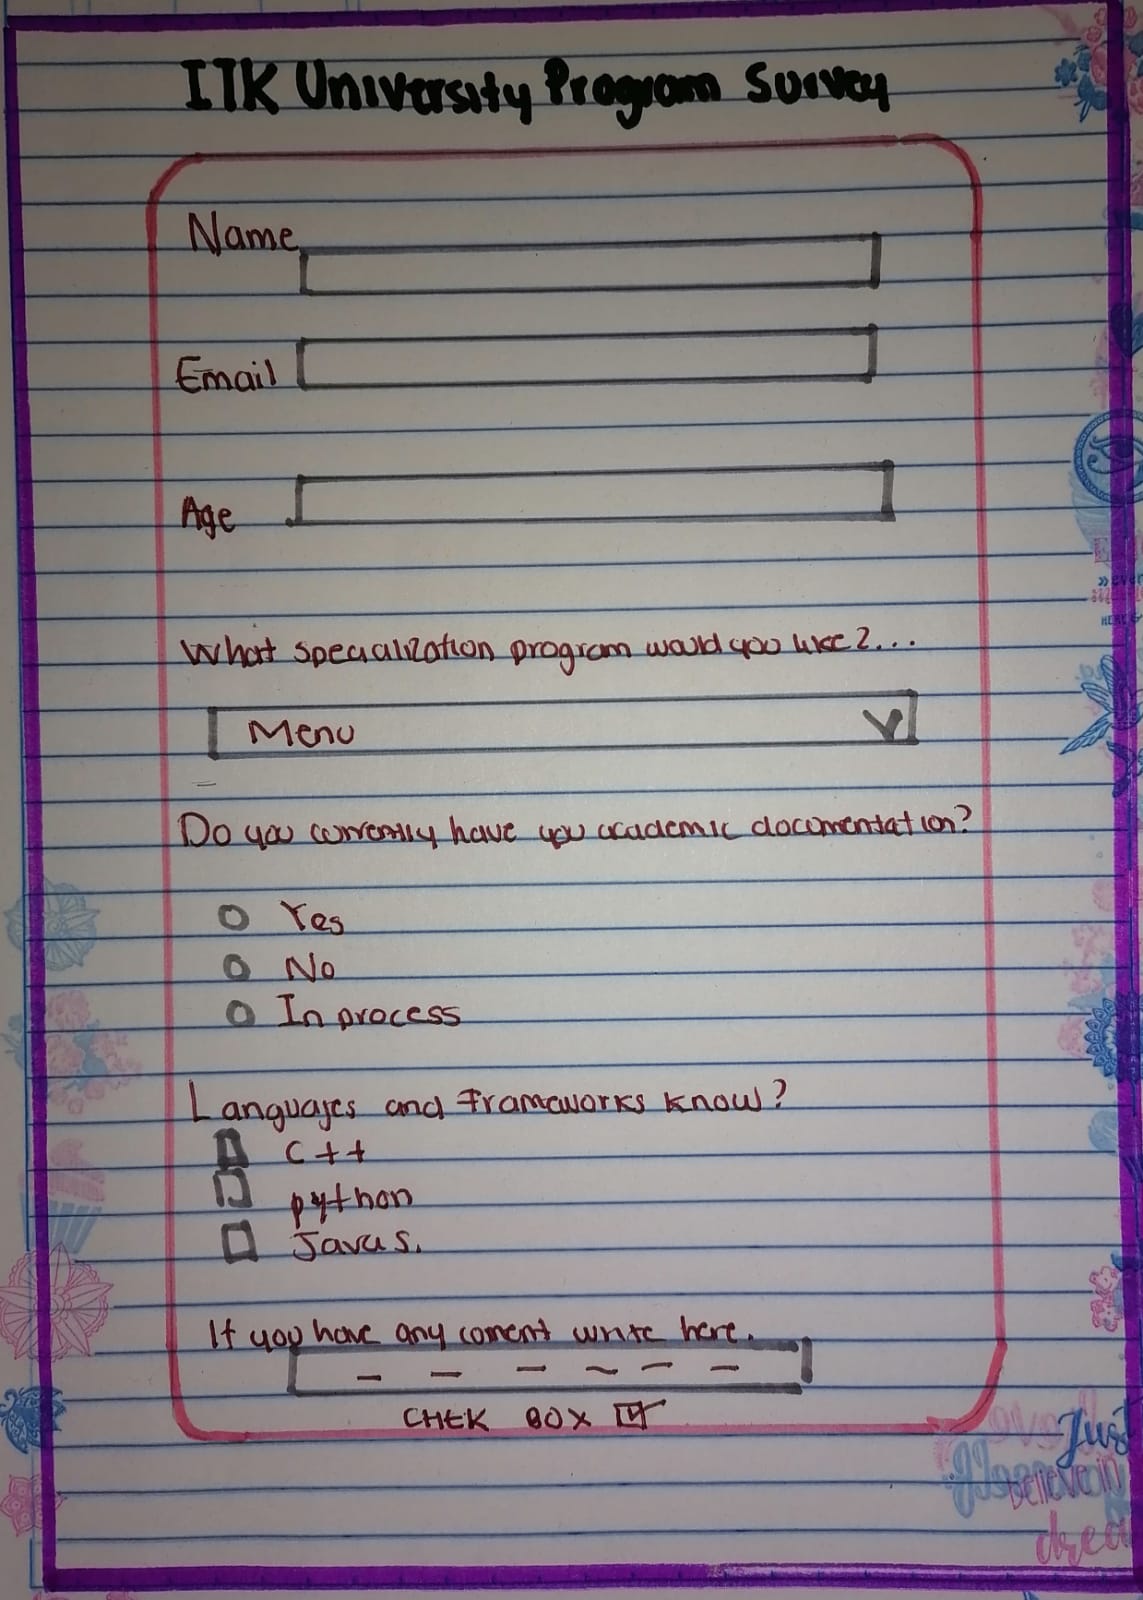 ITK University Program Survey
Name
Email
Age
What specialization program would you like?...
Menu
Do you currently have you academic documentation?
Yes
No
In process
Languajes and Frameworks know?
C++
python
Javas.
If you have any coment write here.
CHEK BOX
Just
Believe in
drea